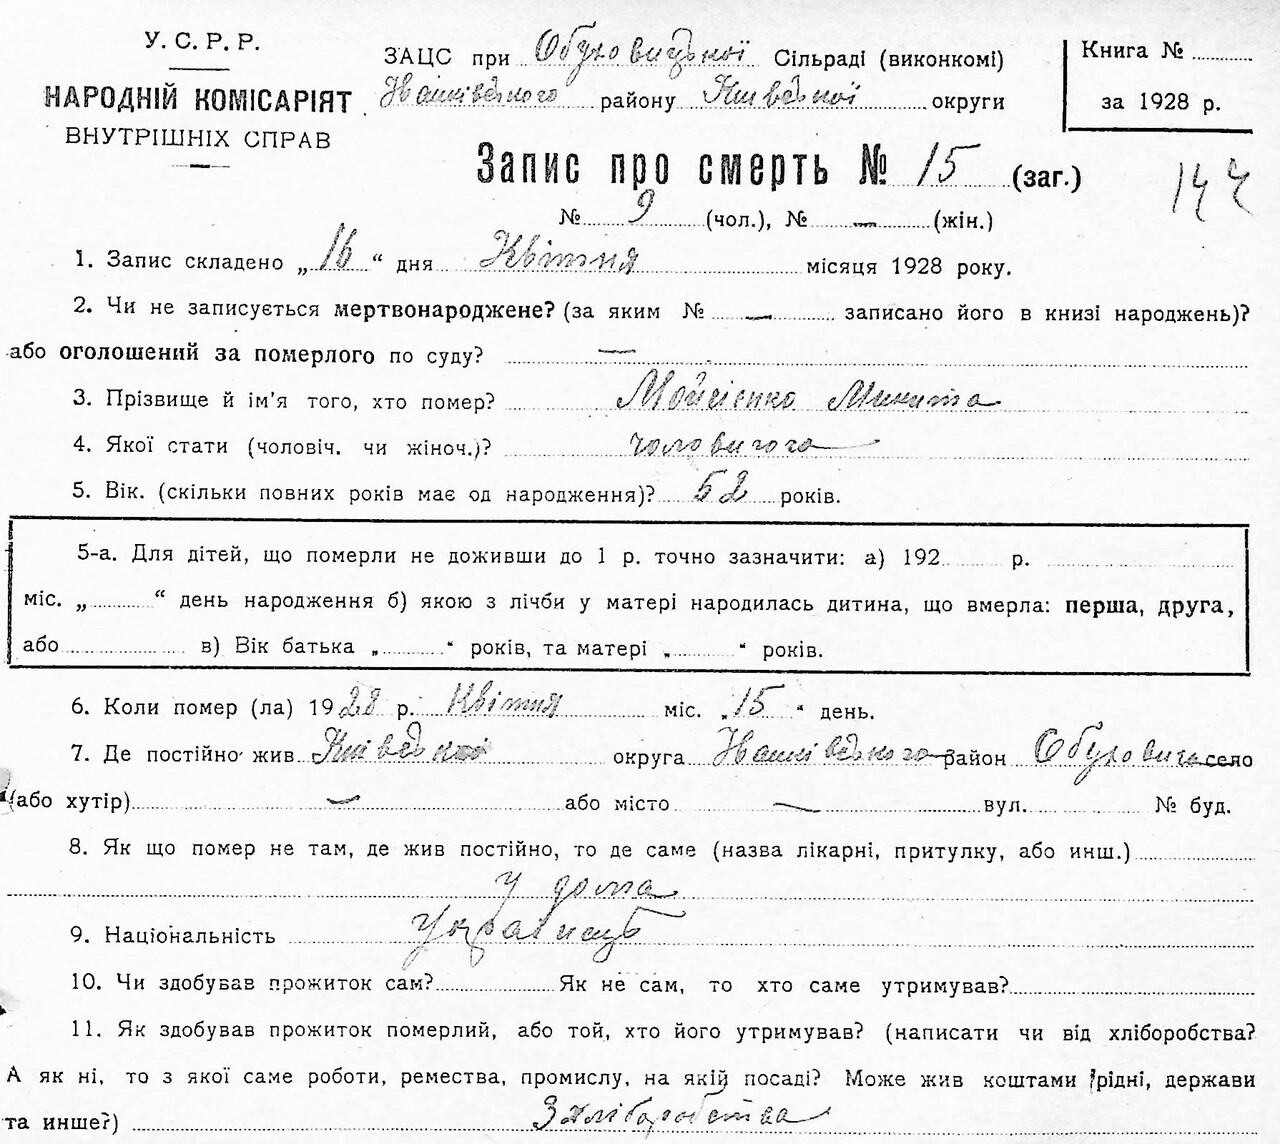 У. С. Р. Р.
НАРОДНІЙ КОМІСАРІЯТ
ВНУТРІШНІХ СПРАВ
ЗАЦС при Обуховицької Сільраді (виконкомі)
Іванківського району Київської округи
Книга №
за 1928 р.
Запис про смерть № 15 (заг.)
№ 9 (чол.), № — (жін.)
144
1. Запис складено „16“ дня Квітня місяця 1928 року.
2. Чи не записується мертвонароджене? (за яким № — записано його в книзі народжень)?
або оголошений за померлого по суду? —
3. Прізвище й ім'я того, хто помер? Мойсієнко Микита
4. Якої стати (чоловіч. чи жіноч.)? чоловичого
5. Вік. (скільки повних років має од народження)? 52 років.
5-а. Для дітей, що померли не доживши до 1 р. точно зазначити: а) 192 р.
міс. „ “ день народження б) якою з лічби у матері народилась дитина, що вмерла: перша, друга,
або в) Вік батька „ “ років, та матері „ “ років.
6. Коли помер (ла) 1928 р. Квітня міс. „15“ день.
7. Де постійно жив Київської округа Іванківського район Обуховичі село
(або хутір) — або місто — вул. № буд.
8. Як що помер не там, де жив постійно, то де саме (назва лікарні, притулку, або инш.)
У дома
9. Національність Українець
10. Чи здобував прожиток сам? Як не сам, то хто саме утримував?
11. Як здобував прожиток померлий, або той, хто його утримував? (написати чи від хліборобства?
А як ні, то з якої саме роботи, ремества, промислу, на якій посаді? Може жив коштами рідні, держави
та инше?) З хліборобства